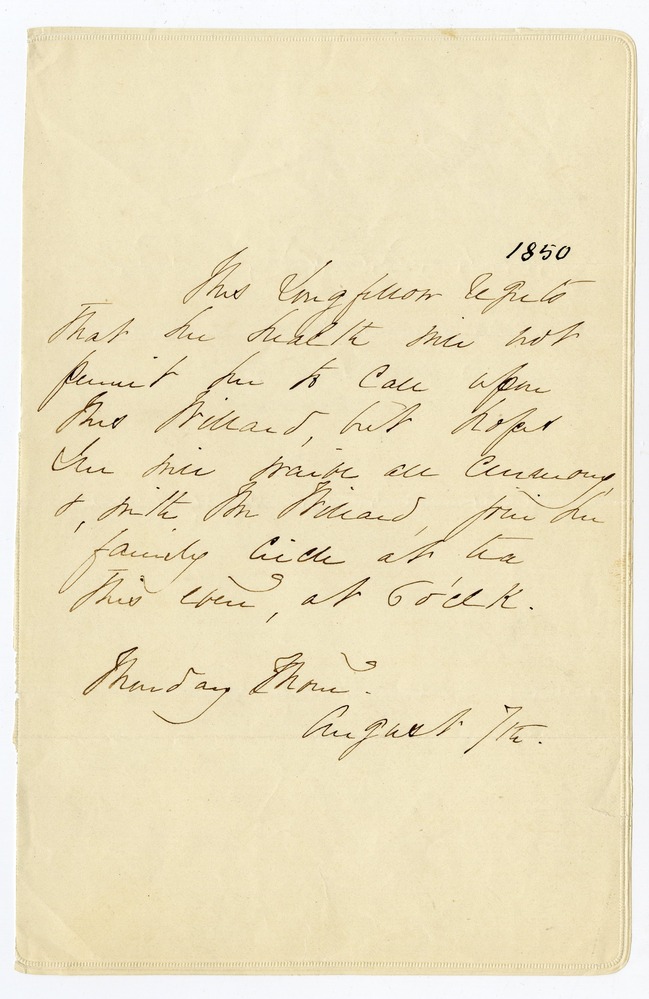 1850
Mrs Longfellow regrets
that her health will not
permit her to call upon
Mrs Willard, but hopes
she will waive all ceremony,
&, with Mr Willard, join her
family circle at tea
this eveng, at 6 o'clk.
Monday Morng.
August 7th.